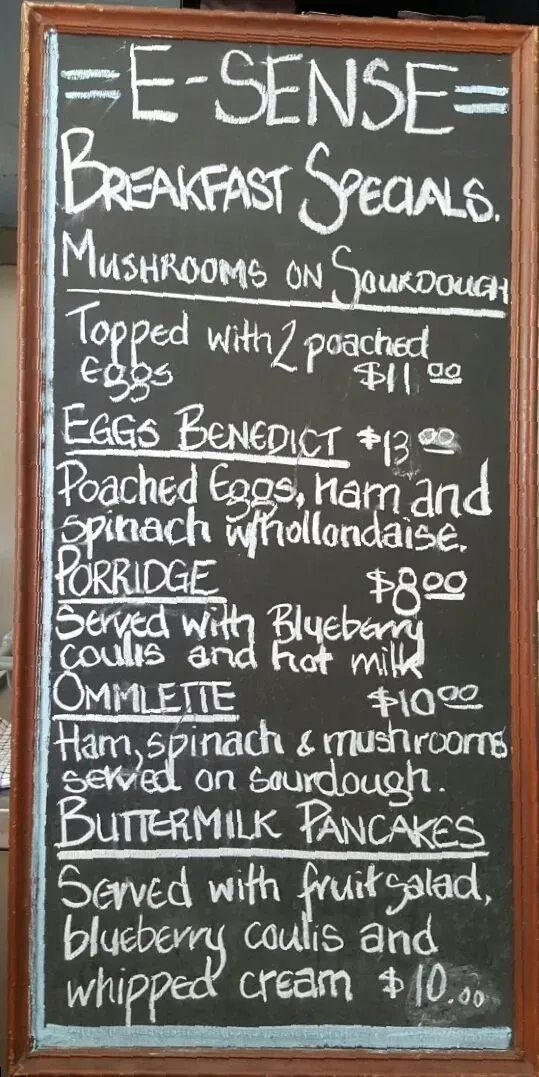 =E-SENSE=
BREAKFAST SPECIALS.
MUSHROOMS ON SOURDOUGH
Topped with 2 poached
Eggs $11 00
EGGS BENEDICT $13 00
Poached Eggs, ham and
spinach w/hollondaise.
PORRIDGE $8 00
Served with Blueberry
coulis and hot milk
OMMLETTE $10 00
Ham, spinach & mushrooms
served on sourdough.
BUTTERMILK PANCAKES
Served with fruit salad,
blueberry coulis and
whipped cream $10.00